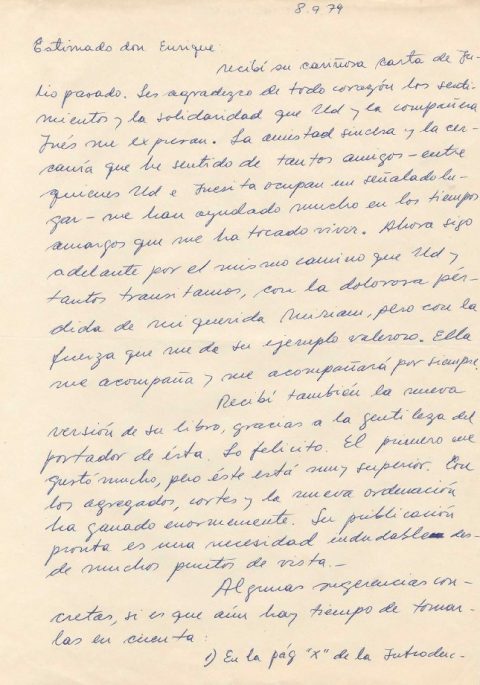 8.9.79
Estimado don Enrique
recibí su cariñosa carta de Ju-
lio pasado. Les agradezco de todo corazón los senti-
mientos y la solidaridad que Ud y la compañera
Inés me expresan. La amistad sincera y la cer-
canía que he sentido de tantos amigos - entre
quienes Ud e Inesita ocupan un señalado lu-
gar - me han ayudado mucho en los tiempos
amargos que me ha tocado vivir. Ahora sigo
adelante por el mismo camino que Ud y
tantos transitamos, con la dolorosa pér-
dida de mi querida Miriam, pero con la
fuerza que me da su ejemplo valeroso. Ella
me acompaña y me acompañará por siempre.
Recibí también la nueva
versión de su libro, gracias a la gentileza del
portador de ésta. Lo felicito. El primero me
gustó mucho, pero éste está muy superior. Con
los agregados, cortes y la nueva ordenación
ha ganado enormemente. Su publicación
pronta es una necesidad indudable des-
de muchos puntos de vista. -
Algunas sugerencias con-
cretas, si es que aún hay tiempo de tomar-
las en cuenta:
1) En la pág "X" de la Introduc-